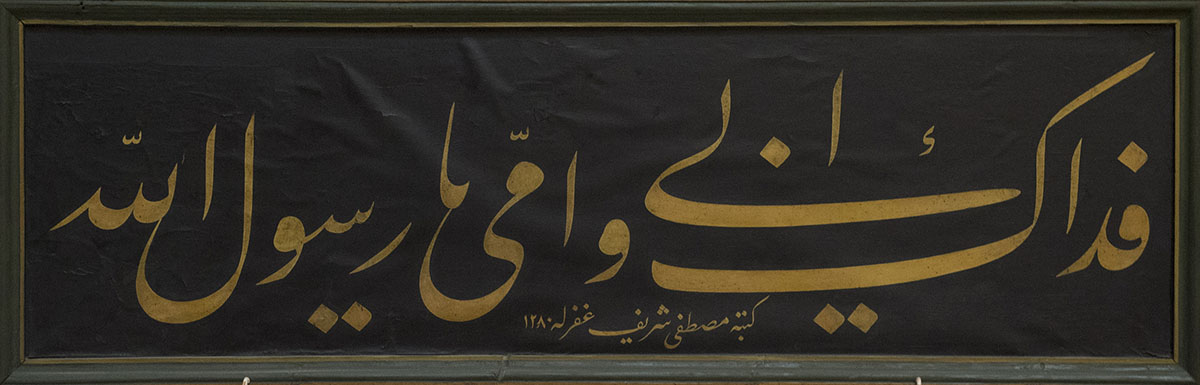 فداك ابي وامّي يا رسول اللّه
كتبه مصطفى شريف غفرله ١٢٨٠